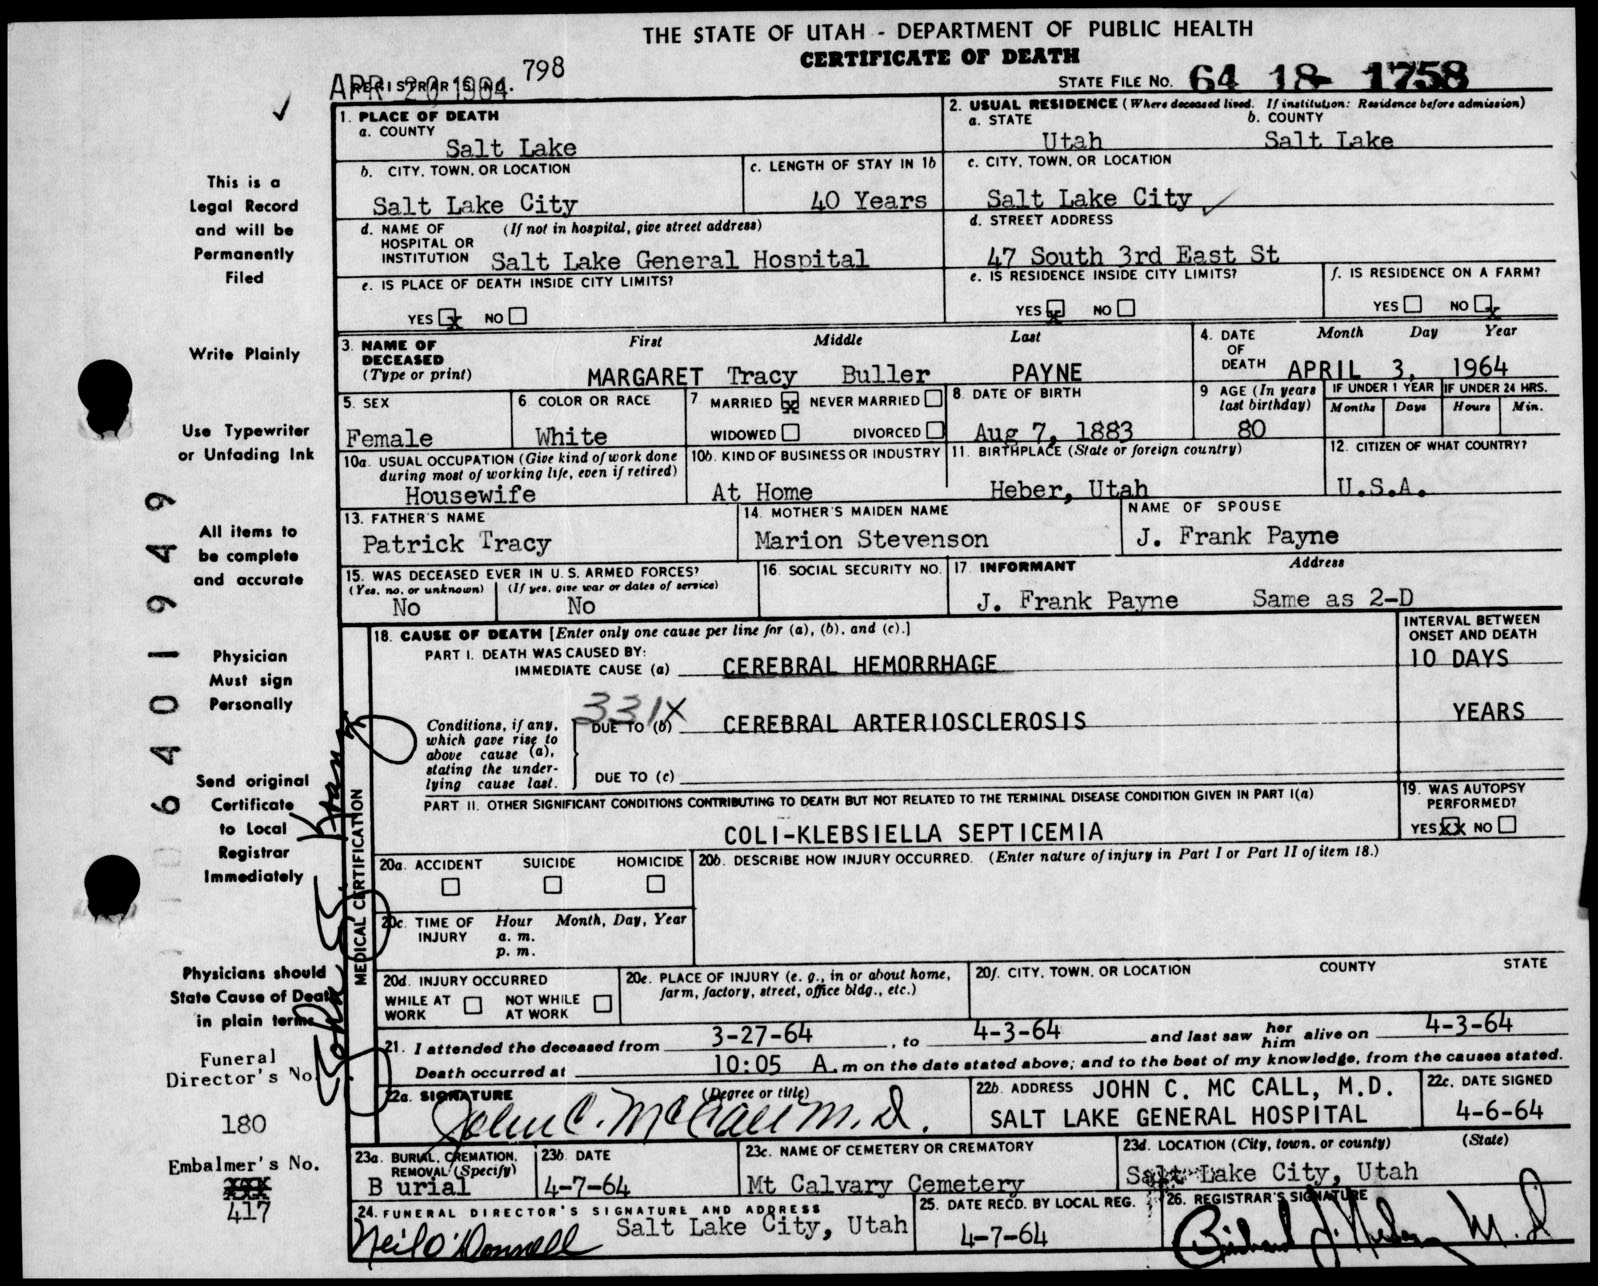 THE STATE OF UTAH - DEPARTMENT OF PUBLIC HEALTH
CERTIFICATE OF DEATH
APR 20 1964 REGISTRAR'S NO. 798
STATE FILE NO. 64 18 1758
1. PLACE OF DEATH
a. COUNTY
Salt Lake
2. USUAL RESIDENCE (Where deceased lived. If institution: Residence before admission)
a. STATE b. COUNTY
Utah Salt Lake
b. CITY, TOWN, OR LOCATION
Salt Lake City
c. LENGTH OF STAY IN 1b
40 Years
c. CITY, TOWN, OR LOCATION
Salt Lake City
d. NAME OF HOSPITAL OR INSTITUTION (If not in hospital, give street address)
Salt Lake General Hospital
d. STREET ADDRESS
47 South 3rd East St
e. IS PLACE OF DEATH INSIDE CITY LIMITS?
YES x NO
e. IS RESIDENCE INSIDE CITY LIMITS?
YES x NO
f. IS RESIDENCE ON A FARM?
YES NO x
3. NAME OF DECEASED (Type or print)
First Middle Last
MARGARET Tracy Buller PAYNE
4. DATE OF DEATH
Month Day Year
APRIL 3, 1964
5. SEX
Female
6 COLOR OR RACE
White
7 MARRIED x NEVER MARRIED
WIDOWED DIVORCED
8. DATE OF BIRTH
Aug 7, 1883
9 AGE (In years last birthday)
80
IF UNDER 1 YEAR
Months Days
IF UNDER 24 HRS.
Hours Min.
10a. USUAL OCCUPATION (Give kind of work done during most of working life, even if retired)
Housewife
10b. KIND OF BUSINESS OR INDUSTRY
At Home
11. BIRTHPLACE (State or foreign country)
Heber, Utah
12. CITIZEN OF WHAT COUNTRY?
U.S.A.
13. FATHER'S NAME
Patrick Tracy
14. MOTHER'S MAIDEN NAME
Marion Stevenson
NAME OF SPOUSE
J. Frank Payne
15. WAS DECEASED EVER IN U. S. ARMED FORCES?
(Yes, no, or unknown) (If yes, give war or dates of service)
No No
16. SOCIAL SECURITY NO.
17 INFORMANT Address
J. Frank Payne Same as 2-D
MEDICAL CERTIFICATION
18. CAUSE OF DEATH [Enter only one cause per line for (a), (b), and (c).]
INTERVAL BETWEEN ONSET AND DEATH
PART I. DEATH WAS CAUSED BY:
IMMEDIATE CAUSE (a) CEREBRAL HEMORRHAGE 10 DAYS
331X
Conditions, if any, which gave rise to above cause (a), stating the underlying cause last.
DUE TO (b) CEREBRAL ARTERIOSCLEROSIS YEARS
DUE TO (c)
PART II. OTHER SIGNIFICANT CONDITIONS CONTRIBUTING TO DEATH BUT NOT RELATED TO THE TERMINAL DISEASE CONDITION GIVEN IN PART I(a)
COLI-KLEBSIELLA SEPTICEMIA
19. WAS AUTOPSY PERFORMED?
YES XX NO
20a. ACCIDENT SUICIDE HOMICIDE
20b. DESCRIBE HOW INJURY OCCURRED. (Enter nature of injury in Part I or Part II of item 18.)
20c. TIME OF INJURY Hour Month, Day, Year
a. m.
p. m.
20d. INJURY OCCURRED
WHILE AT WORK NOT WHILE AT WORK
20e. PLACE OF INJURY (e. g., in or about home, farm, factory, street, office bldg., etc.)
20f. CITY, TOWN, OR LOCATION COUNTY STATE
21. I attended the deceased from 3-27-64, to 4-3-64 and last saw her him alive on 4-3-64
Death occurred at 10:05 A.m on the date stated above; and to the best of my knowledge, from the causes stated.
22a. SIGNATURE (Degree or title)
John C. McCall M.D.
22b. ADDRESS JOHN C. MC CALL, M.D.
SALT LAKE GENERAL HOSPITAL
22c. DATE SIGNED
4-6-64
23a. BURIAL, CREMATION, REMOVAL (Specify)
B urial
23b. DATE
4-7-64
23c. NAME OF CEMETERY OR CREMATORY
Mt Calvary Cemetery
23d. LOCATION (City, town, or county) (State)
Salt Lake City, Utah
24. FUNERAL DIRECTOR'S SIGNATURE AND ADDRESS
Neil O'Donnell Salt Lake City, Utah
25. DATE RECD. BY LOCAL REG.
4-7-64
26. REGISTRAR'S SIGNATURE
M.D
This is a
Legal Record
and will be
Permanently
Filed
Write Plainly
Use Typewriter
or Unfading Ink
All items to
be complete
and accurate
Physician
Must sign
Personally
Send original
Certificate
to Local
Registrar
Immediately
Physicians should
State Cause of Death
in plain terms
Funeral
Director's No.
180
Embalmer's No.
417
6401949